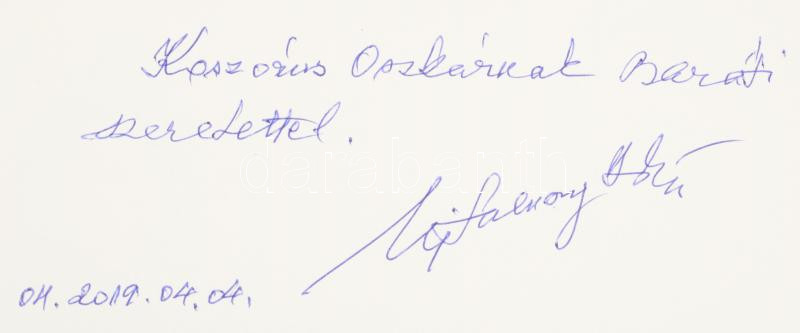 Koszorús Oszkárnak Baráti
szeretettel.
darabanth
Újfalussy Béla
OH. 2019.04.04.